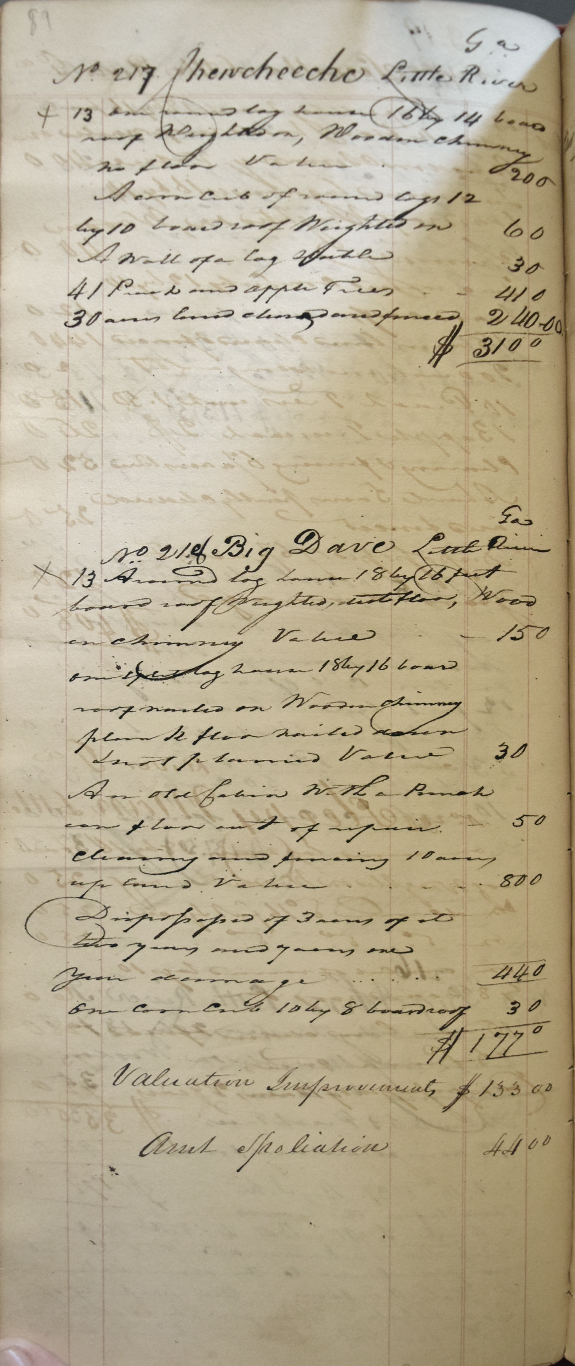 89
Ga
No 217 Chewcheeche Little River
x 13 one round log house 16 by 14 board
roof Weighted on, Wooden chimney
no floor Value 200
A corn crib of round logs 12
by 10 board roof Weighted on 60
A Wall of a log Stable 30
41 Peach and apple Trees 410
30 acres land cleared and fenced 240.00
$ 3100
Ga
No 218 Big Dave Little River
x 13 A round log house 18 by 16 feet
board roof Weighted, floor, Wood
en chimney Value 150
one log house 18 by 16 board
roof nailed on Wooden chimney
plank floor nailed down
& not planned Value 30
An old Cabin With a Punch
eon floor out of repair 50
clearing and fencing 10 acres
up land Value 800
Dispossessed of 3 acres of it
two years and 7 acres one
year damage 440
one corn crib 10 by 8 board roof 30
$ 1770
Valuation Improvements $ 13300
Amt Spoliation 4400